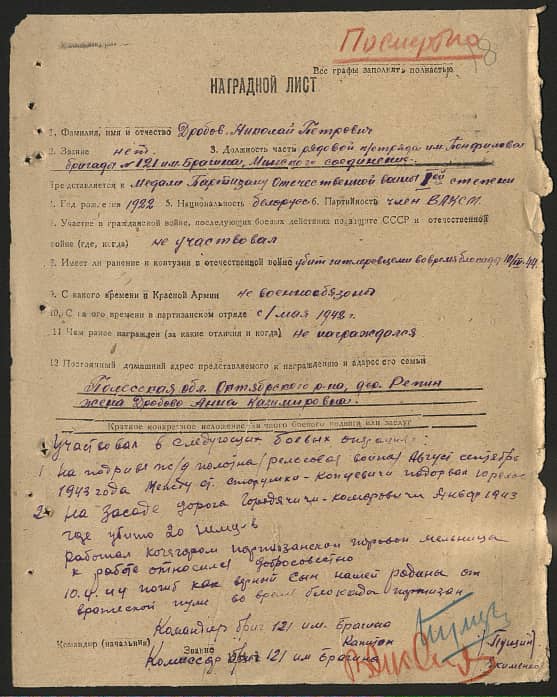 Посмертно
8
Все графы заполнять полностью
НАГРАДНОЙ ЛИСТ
1. Фамилия, имя и отчество Дробов Николай Петрович
2. Звание нет. 3. Должность часть рядовой п/отряда им. Понфилова
бригады №121 им. Брагина, Минского соединение
Представляется к Медали Партизану Отечественной войны степени
4. Год рождения 1922 5. Национальность белорус 6. Партийность член ВЛКСМ
7. Участие в гражданской войне, последующих боевых действиях по защите СССР и отечественной
войне (где, когда) не участвовал
8. Имеет ли ранение и контузии в отечественной войне убит гитлеровцами во время блокады 10/IV-44г.
9. С какого времени в Красной Армии не военнообязан
10. С какого времени в партизанском отряде с 1 мая 1942 г.
11 Чем ранее награжден (за какие отличия и когда) не награждался
12 Постоянный домашний адрес представляемого к награждению и адрес его семьи
Полесская обл. Октябрского р-на, дер. Репин
жена Дробово Анна Казимировна
Краткое конкретное изложение личного боевого подвига или заслуг
Участвовал в следующих боевых операциях:
1 на подриве ж/д полотна /релсовая война/ Август сентябрь
1943 года между ст. старушки - копцевичи подорвал
2. На засаде дорога Городячичи - комаровичи Январ 1943
где убито 20 немцев
работал кочегаром партизанской паровой мельница
к работе относился добросовестно
10.4.44 погиб как верный сын нашей родины от
вражеской пули во время блокады партизан
Командир бриг 121 им. Брагина
Командир (начальник) Звание Капитан (Пущин)
Комиссар бриг 121 им Брагина